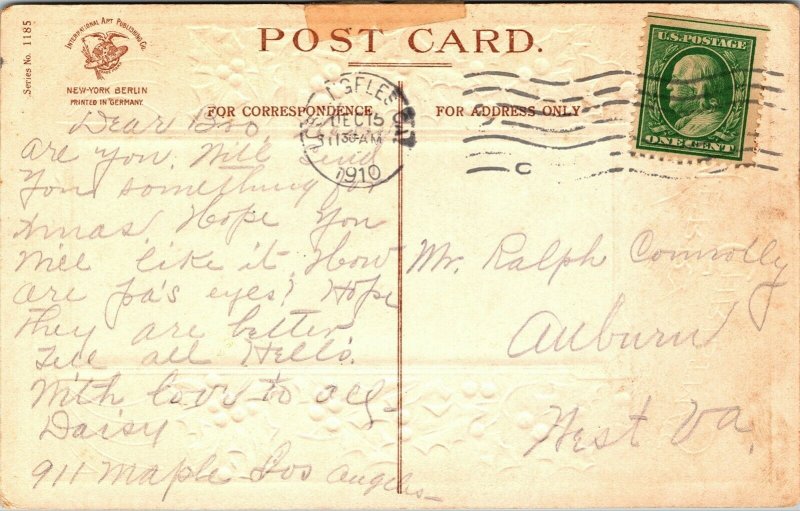 POST CARD.
Series No. 1185
INTERNATIONAL ART PUBLISHING CO.
NEW-YORK BERLIN
PRINTED IN GERMANY
FOR CORRESPONDENCE
FOR ADDRESS ONLY
ANGELES CAL
DEC 15
11 30 AM
1910
C
U.S. POSTAGE
ONE CENT
Dear Bro
are you. Will send
you something for
xmas. Hope you
will like it. How
are pa's eyes? Hope
they are better
Tell all Hello.
With love to all
Daisy
911 Maple Los Angeles
Mr. Ralph Connolly
Auburn
West Va.